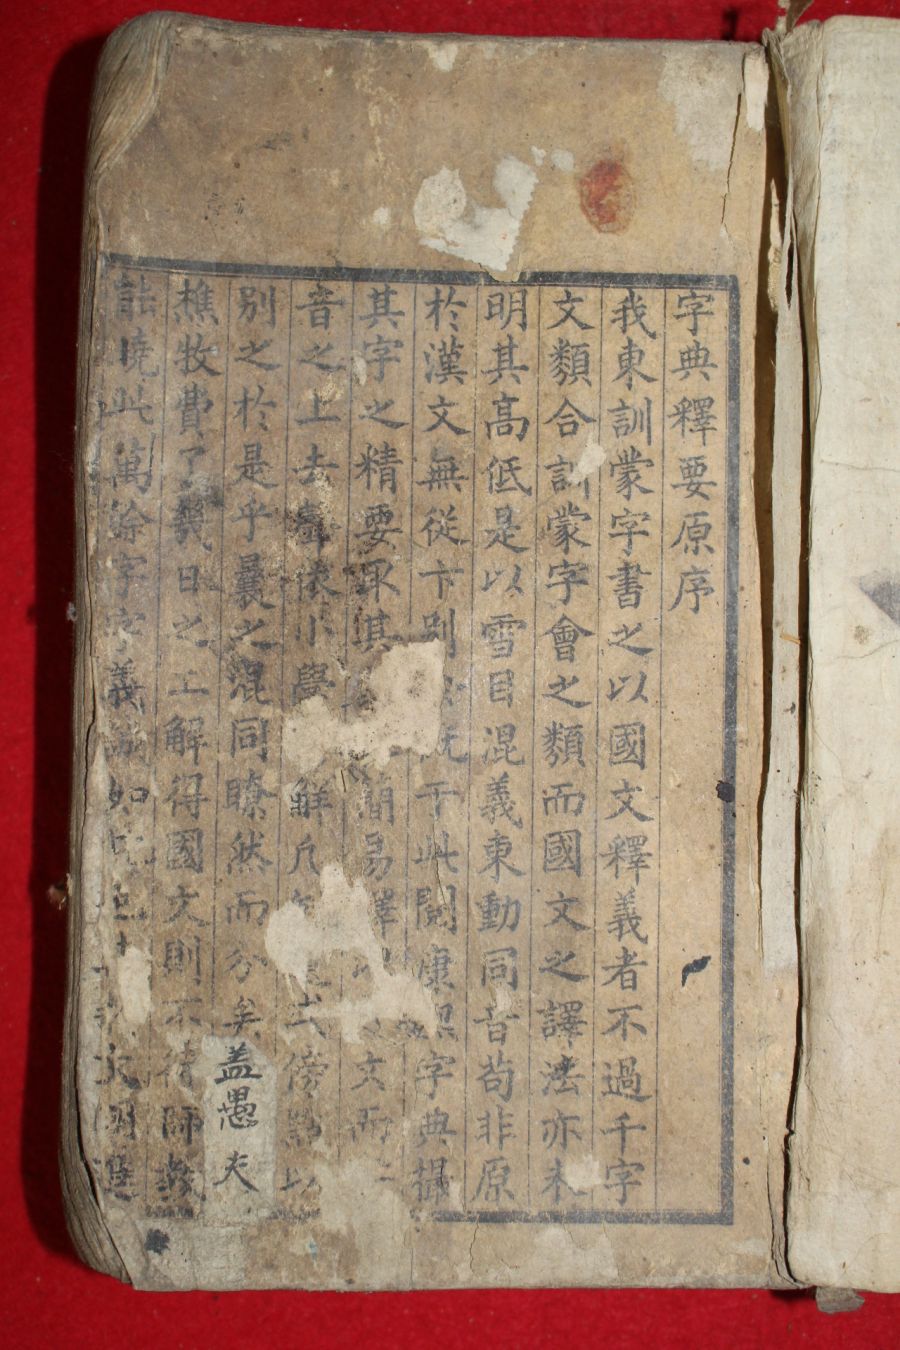 字典釋要原序
我東訓蒙字書之以國文釋義者不過千字
文類合訓蒙字會之類而國文之譯法亦未
明其高低是以雪目混義東動同音苟非原
於漢文無從卞別 旣于此閱康熙字典撮
其字之精要取其 簡易譯 文而
音之上去聲依小學 解凡 式傍點以
別之於是乎曩之混同瞭然而分矣盖愚夫
樵牧費了幾日之工解得國文則不待師敎
能曉此萬餘字字義